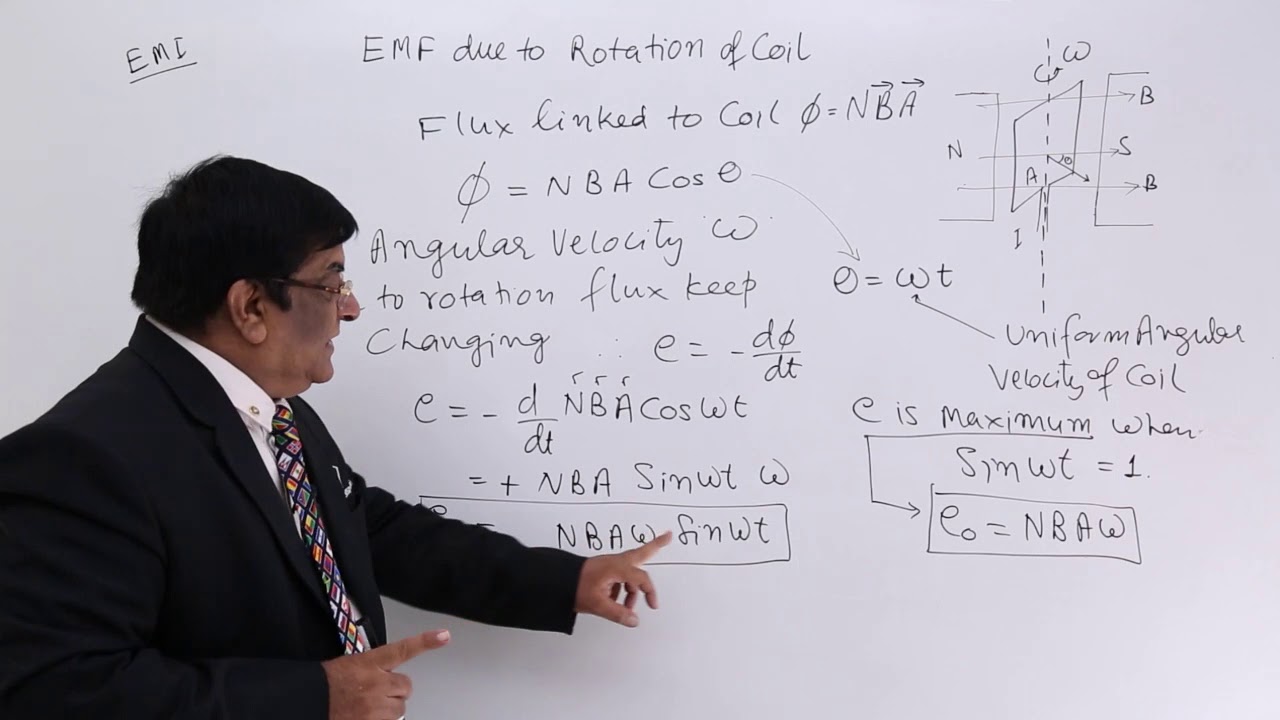 EMI
EMF due to Rotation of Coil
Flux linked to Coil ϕ = NB⃗A⃗
ϕ = NBA Cos θ
Angular Velocity 'ω'
to rotation flux keep
Changing ∴ e = - dϕ/dt
e = - d/dt NBA Cos ωt
= + NBA Sin ωt ω
e = NBAω Sin ωt
ω
B
N
S
θ
A
B
I
θ = ωt
Uniform Angular
Velocity of Coil
e is maximum when
Sin ωt = 1.
e₀ = NBAω